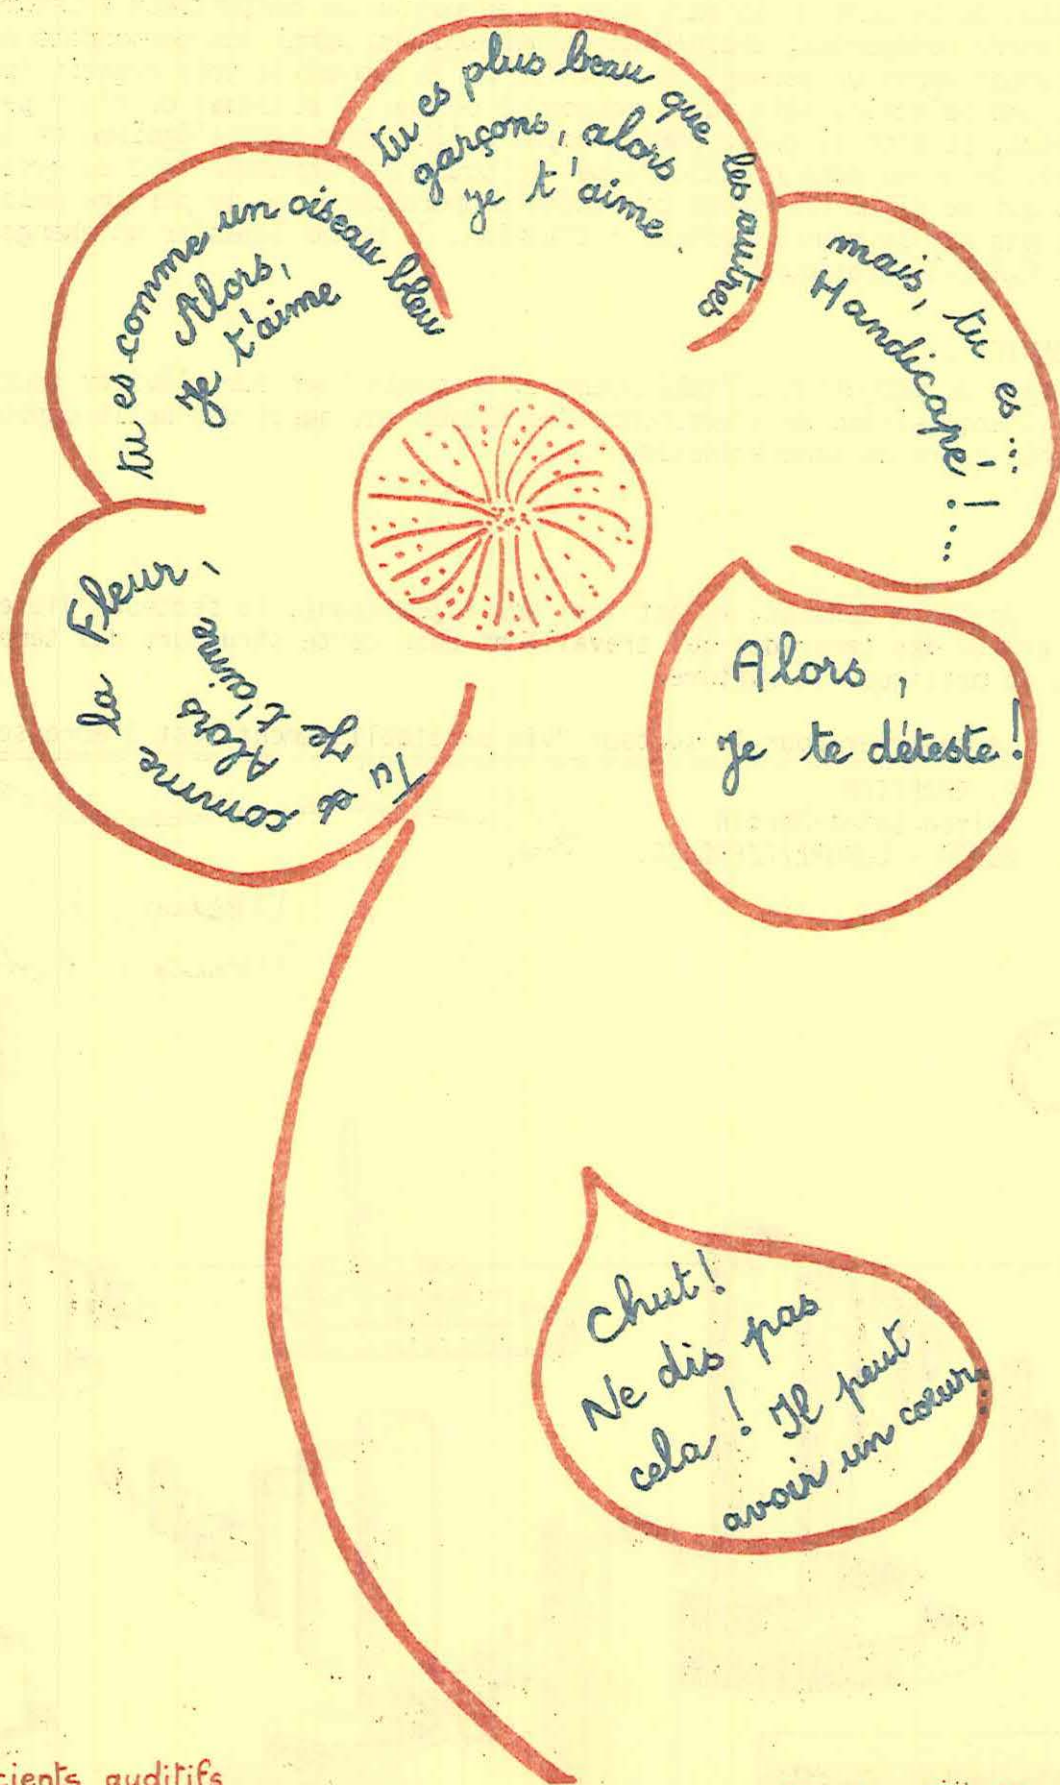 Tu es comme la Fleur,
Alors
Je t'aime
tu es comme un oiseau bleu
Alors,
Je t'aime
tu es plus beau que les autres
garçons, alors
je t'aime.
mais, tu es...
Handicapé!...
Alors,
Je te déteste!
Chut!
Ne dis pas
cela! Il peut
avoir un coeur...
cients auditifs